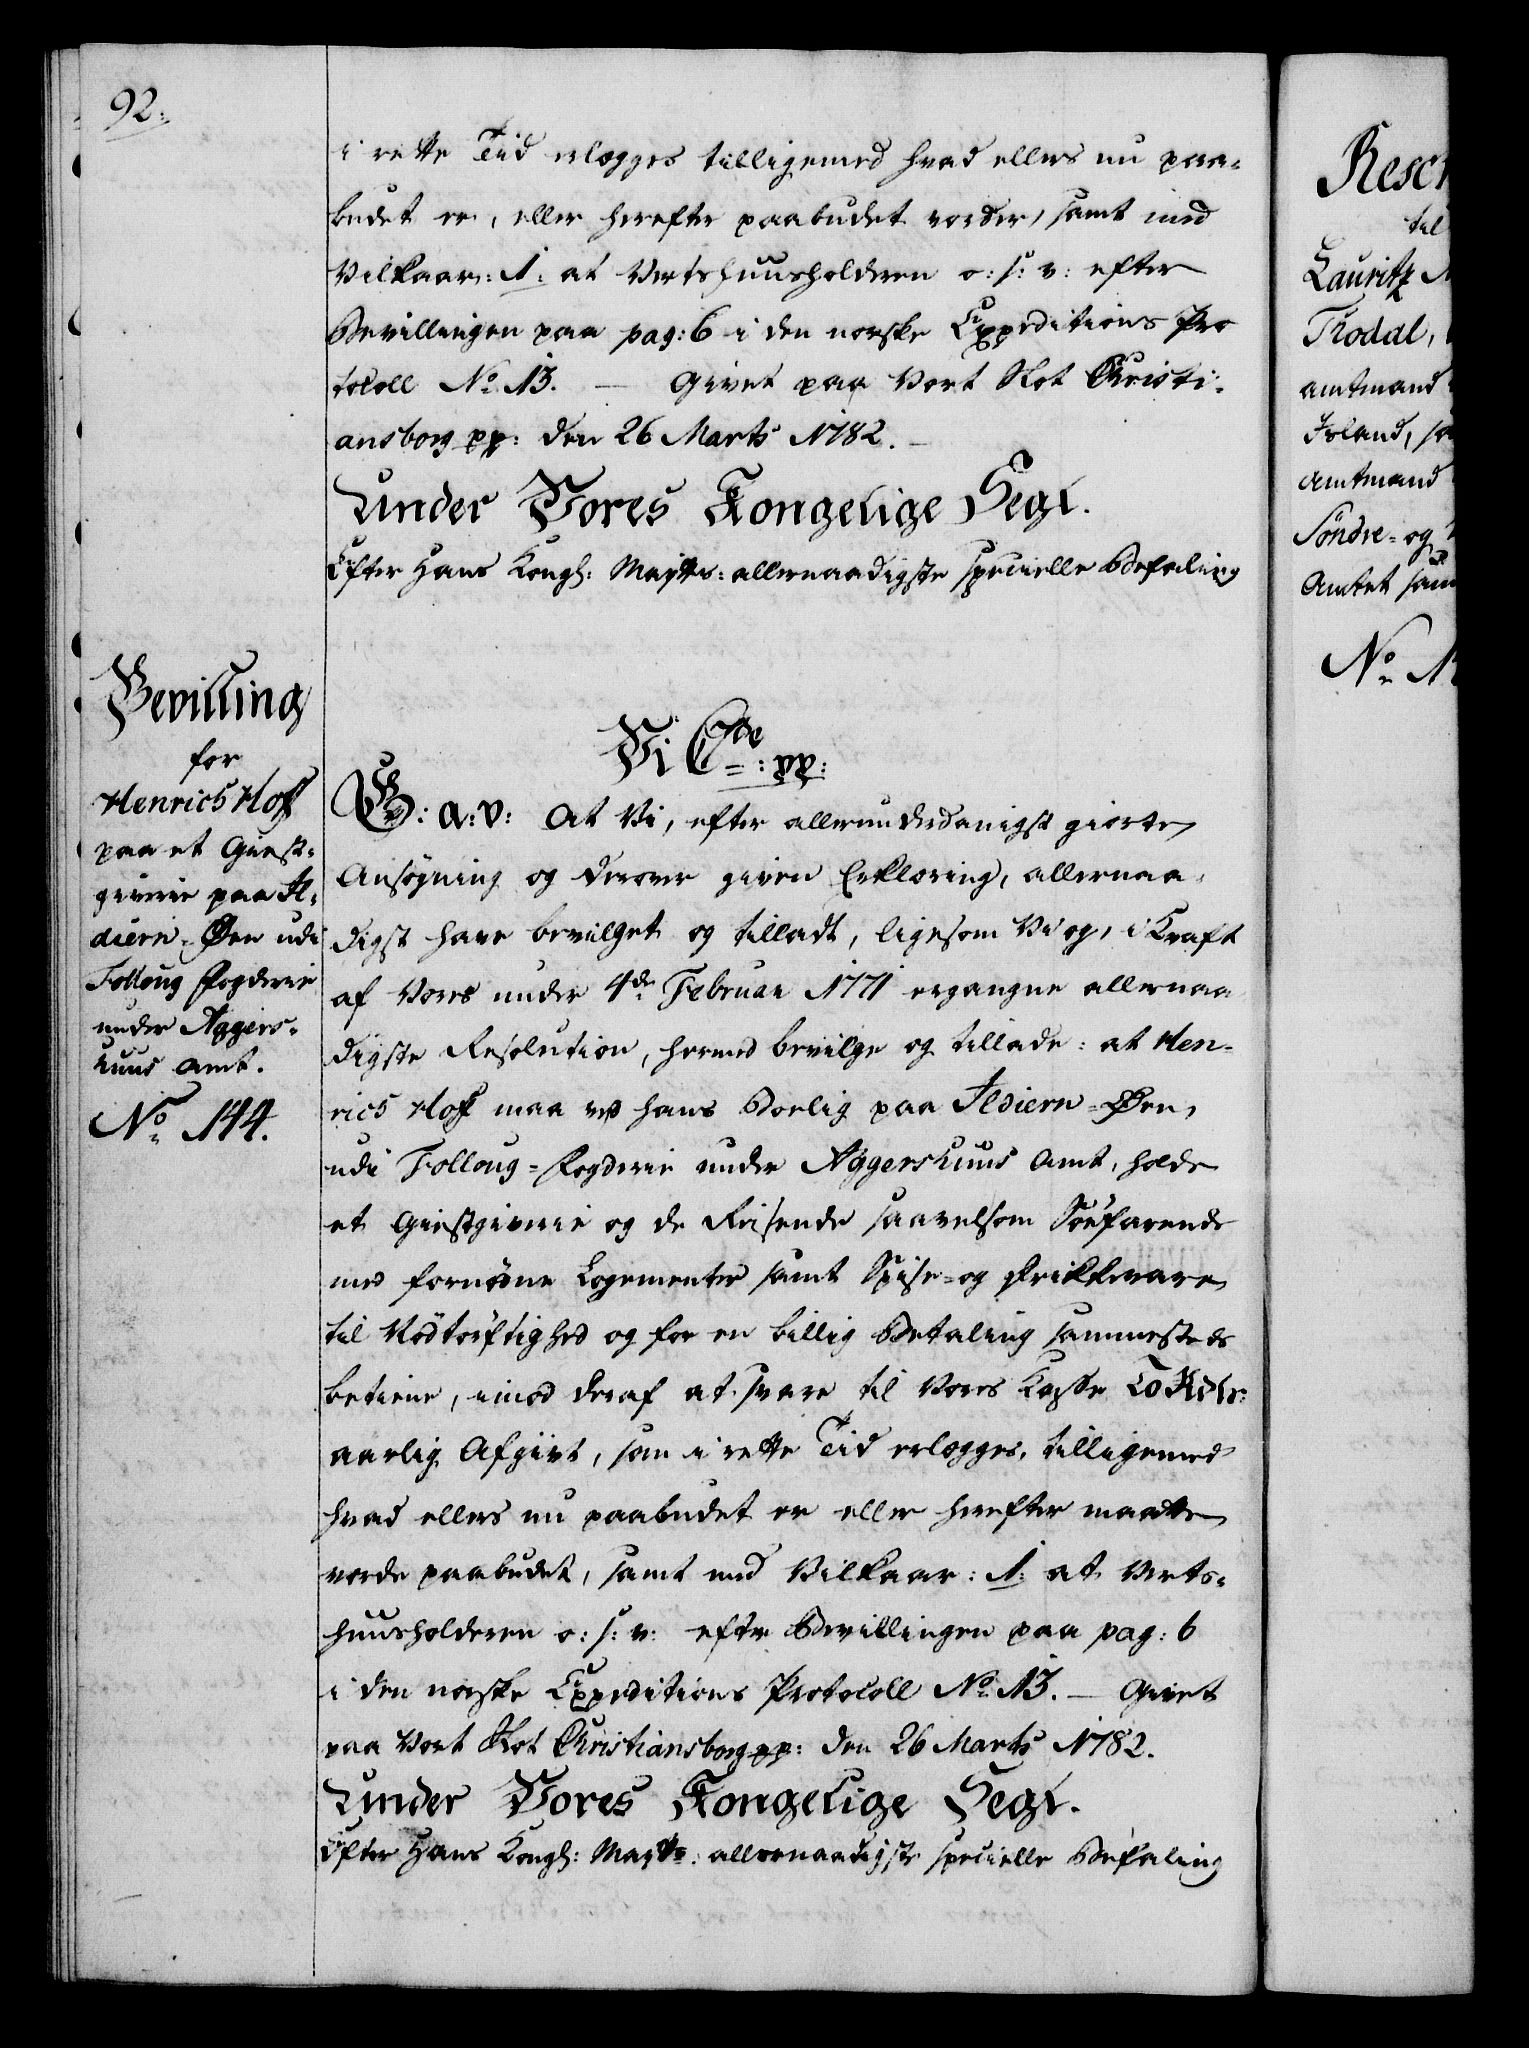 92.
i rette Tid erlægges tilligemed hvad ellers nu paa-
budet er, eller herefter paabudet vorder, samt med
Vilkaar: 1. at Vertshuusholderen o: s: v: efter
Bevillingen paa pag: 6 i den norske Expeditions Pro
tocoll No 13. — Givet paa Vort Slot Christi-
ansborg pp: den 26 Marts 1782. —
Under Vores Kongelige Segl.
Efter Hans Kongl: Maytts: allernaadigste specielle Befaling
Bevilling
for
Henrich Hoff
paa et Giest-
giverie paa Il-
diern-Øen udi
Folloug Fogderie
under Aggers-
huus Amt.
No 144.
Vi C 7de: pp:
G: a: v: At Vi, efter allerunderdanigst giorte
Ansøgning og derover given Erklæring, allernaa-
digst have bevilget og tilladt, ligesom Vi og, i Kraft
af Vores under 4de Februar 1771 ergangne allernaa
digste Resolution, hermed bevilge og tillade: at Hen-
rich Hoff maa ved hans Boelig paa Ildiern-Øen,
udi Folloug-Fogderie under Aggershuus Amt, holde
et Giestgiverie og de Reisende saavelsom Söefarende
med fornødne Logementer samt Spise- og Drikkevare
til Nödtörftighed og for en billig Betaling sammesteds
betiene, imod deraf at svare til Vores Kasse To Rdlr:
aarlig Afgivt, som i rette Tid erlægges, tilligemed
hvad ellers nu paabudet er eller herefter maatte
vorde paabudet, samt med Vilkaar: 1. at Verts-
huusholderen o: s: v: efter Bevillingen paa pag: 6
i den norske Expeditions Protocoll No 13. — Givet
paa Vort Slot Christiansborg pp: den 26 Marts 1782.
Under Vores Kongelige Segl.
Efter Hans Kongl: Maytts: allernaadigste specielle Befaling
til
Lauritz
Thodal,
amtmand
Island,
Amtmand
Söndre- og
Amtet
No